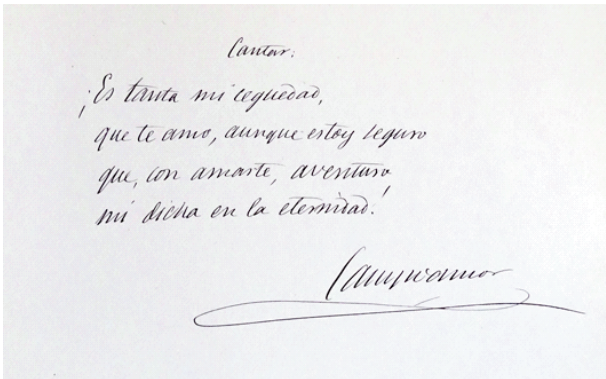 Cantar.
¡Es tanta mi ceguedad,
que te amo, aunque estoy seguro
que, con amarte, aventuro
mi dicha en la eternidad!
Campoamor